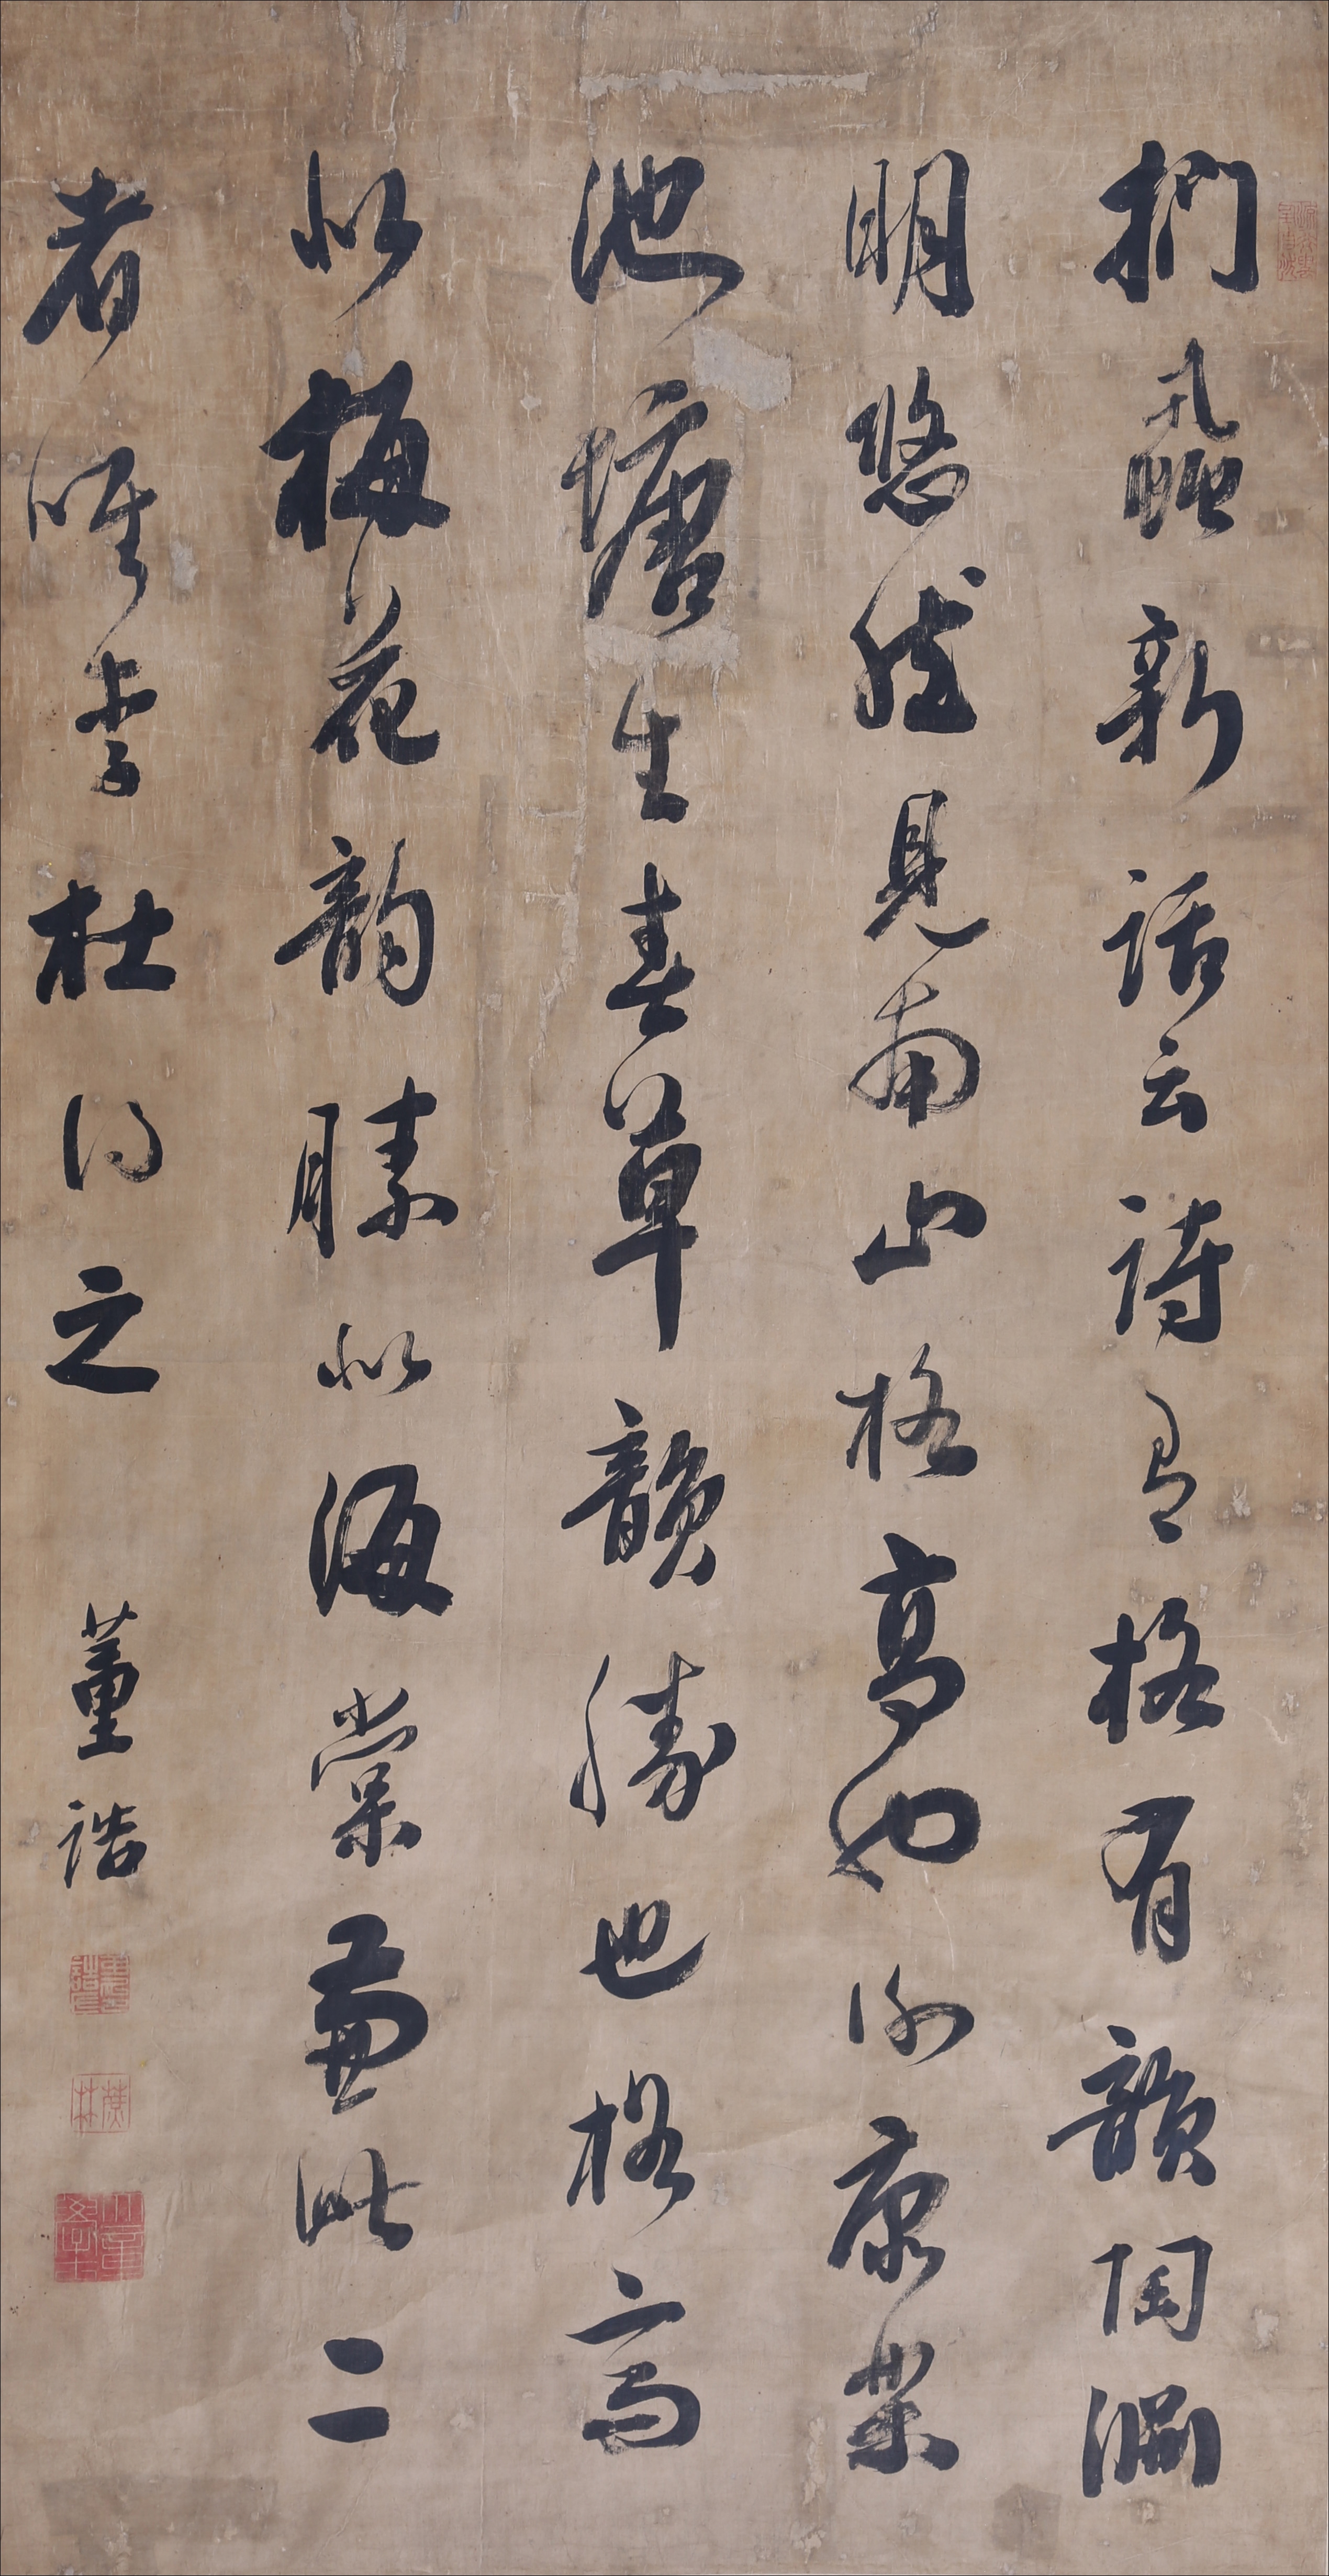 捫蝨新話云詩有格有韻陶淵
明悠然見南山格高也謝康樂
池塘生春草韻勝也格高
似梅花韵勝似海棠兼此二
者唯李杜得之 董誥
蔗林